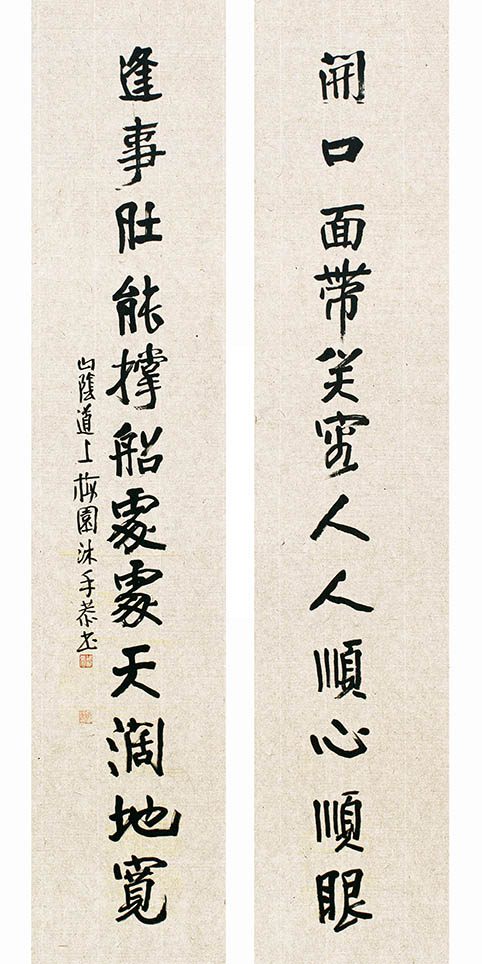 開口面帶笑容人人順心順眼
逢事肚能撐船處處天濶地寬
山陰道上梅園沐手恭书